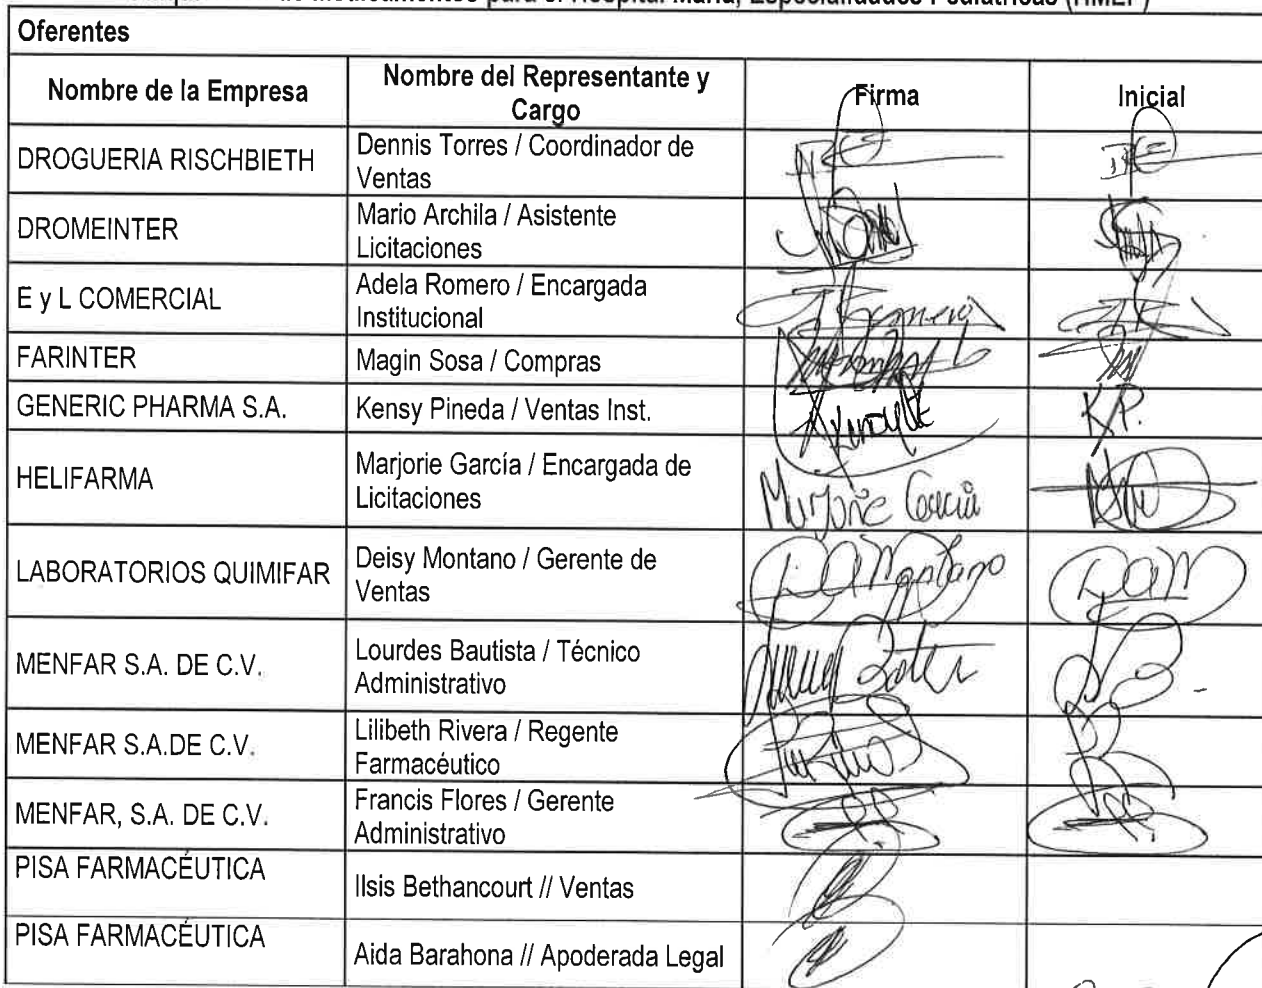 de Medicamentos para el Hospital María, Especialidades Pediátricas (HMEP)
Oferentes
Nombre de la Empresa
Nombre del Representante y
Cargo
Firma
Inicial
DROGUERIA RISCHBIETH
Dennis Torres / Coordinador de
Ventas
DROMEINTER
Mario Archila / Asistente
Licitaciones
E y L COMERCIAL
Adela Romero / Encargada
Institucional
FARINTER
Magin Sosa / Compras
GENERIC PHARMA S.A.
Kensy Pineda / Ventas Inst.
K.P.
HELIFARMA
Marjorie García / Encargada de
Licitaciones
LABORATORIOS QUIMIFAR
Deisy Montano / Gerente de
Ventas
MENFAR S.A. DE C.V.
Lourdes Bautista / Técnico
Administrativo
MENFAR S.A.DE C.V.
Lilibeth Rivera / Regente
Farmacéutico
MENFAR, S.A. DE C.V.
Francis Flores / Gerente
Administrativo
PISA FARMACÉUTICA
Ilsis Bethancourt // Ventas
PISA FARMACÉUTICA
Aida Barahona // Apoderada Legal